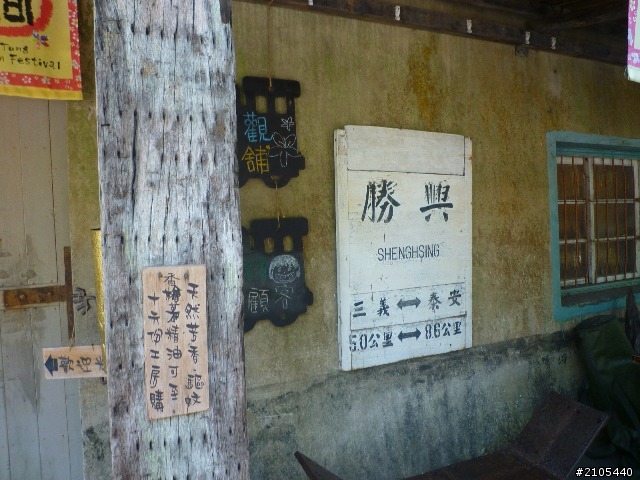 Tung
Festival
觀
舖
顧
客
勝興
SHENGHSING
三義 ↔ 泰安
5.0公里 ↔ 8.6公里
天然芳香 驅蚊
香精油可至
十六份工房購
歡迎
#2105440